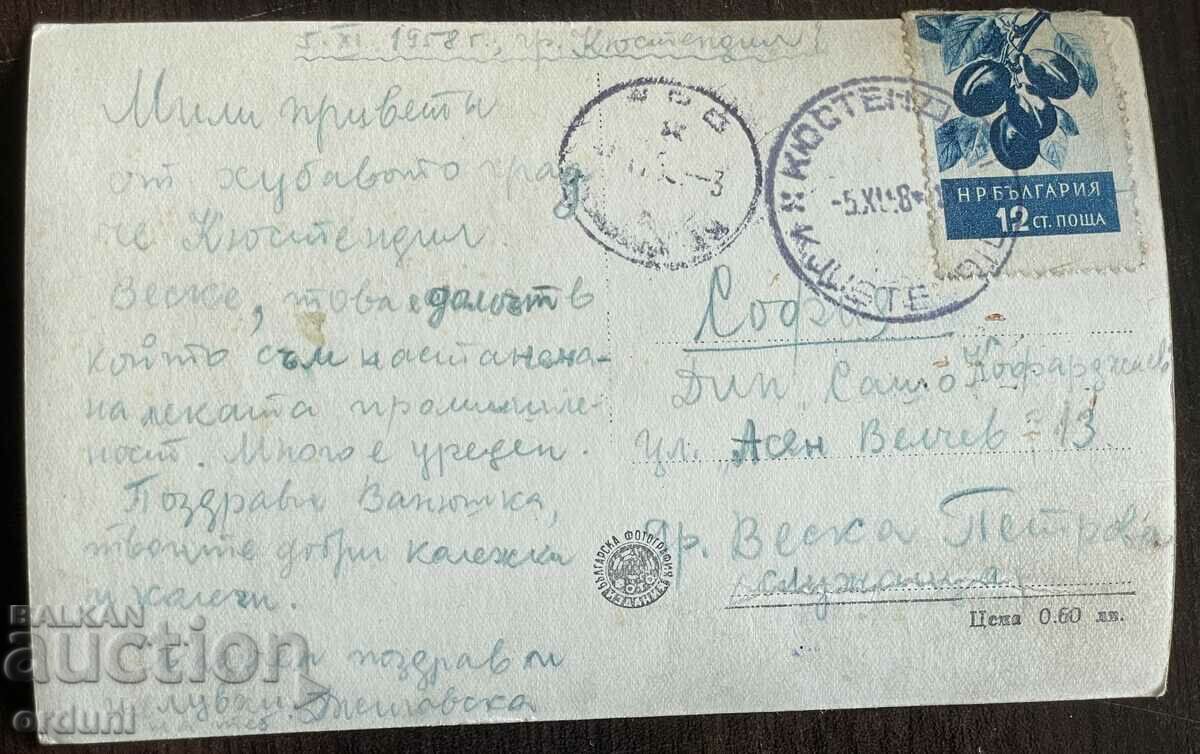 5. XI. 1958 г., гр. Кюстендил
Мили привети
от хубавото град
че Кюстендил.
Веске, това е домът в
който съм настанена-
на леката промишле-
ност. Много е уреден.
Поздрави Ванюшка,
твоите добри колежки
и колеги.
поздрави
целувки.
КЮСТЕНДИЛ
-5.XI.58
НР БЪЛГАРИЯ
12 СТ. ПОЩА
София
Дип Сашо Кофарджиев
ул. Асен Велчев - 13
др. Веска Петрова
служаща
БЪЛГАРСКА ФОТОГРАФИЯ
Цена 0.60 лв.
BALKAN
auction
orduni